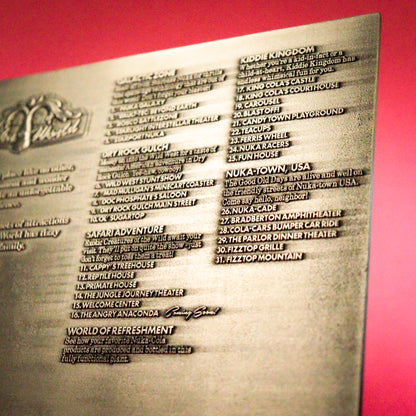 World
GALACTIC ZONE
NUKA-GALAXY
VAULT-TEC: BEYOND EARTH
ROBCO BATTLEZONE
STARLIGHT INTERSTELLAR THEATER
STARPORT NUKA
DRY ROCK GULCH
6. WILD WEST STUNT SHOW
7. MAD MULLIGAN'S MINECART COASTER
8. DOC PHOSPHATE'S SALOON
9. DRY ROCK GULCH MAIN STREET
10. DR. SUGARTOP
SAFARI ADVENTURE
Exotic Creatures of the Wild await your
visit. They'll put on quite the show - just
don't forget to toss them a treat!
11. CAPPY STREEHOUSE
12. REPTILE HOUSE
13. PRIMATE HOUSE
14. THE JUNGLE JOURNEY THEATER
15. WELCOME CENTER
16. THE ANGRY ANACONDA Coming Soon!
WORLD OF REFRESHMENT
See how your favorite Nuka-Cola
products are produced and bottled in this
fully functional plant.
KIDDIE KINGDOM
Whether you're a kid-in-fact or a
child-at-heart, Kiddie Kingdom has
endless whimsical fun for you.
17. KING COLA'S CASTLE
18. KING COLA'S COURTHOUSE
19. CAROUSEL
20. BLAST OFF!
21. CANDY TOWN PLAYGROUND
22. TEACUPS
23. FERRIS WHEEL
24. NUKA RACERS
25. FUN HOUSE
NUKA-TOWN, USA
The Good Old Days are alive and well on
the friendly streets of Nuka-town USA.
Come say hello, neighbor!
26. NUKA-CADE
27. BRADBERTON AMPHITHEATER
28. COLA-CARS BUMPER CAR RIDE
29. THE PARLOR DINNER THEATER
30. FIZZTOP GRILLE
31. FIZZTOP MOUNTAIN